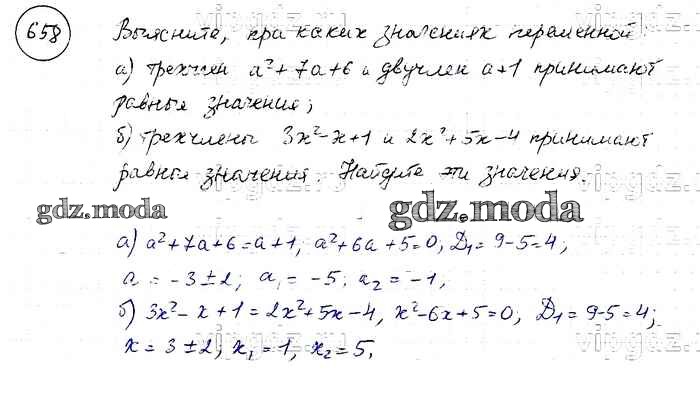 658
Выясните, при каких значениях переменной:
а) трехчлен a²+7a+6 и двучлен a+1 принимают
равные значения;
б) трехчлены 3x²-x+1 и 2x²+5x-4 принимают
равные значения. Найдите эти значения.
gdz.moda gdz.moda
а) a²+7a+6=a+1, a²+6a+5=0, D₁=9-5=4;
a=-3±2; a₁=-5; a₂=-1,
б) 3x²-x+1=2x²+5x-4, x²-6x+5=0, D₁=9-5=4;
x=3±2; x₁=1, x₂=5,